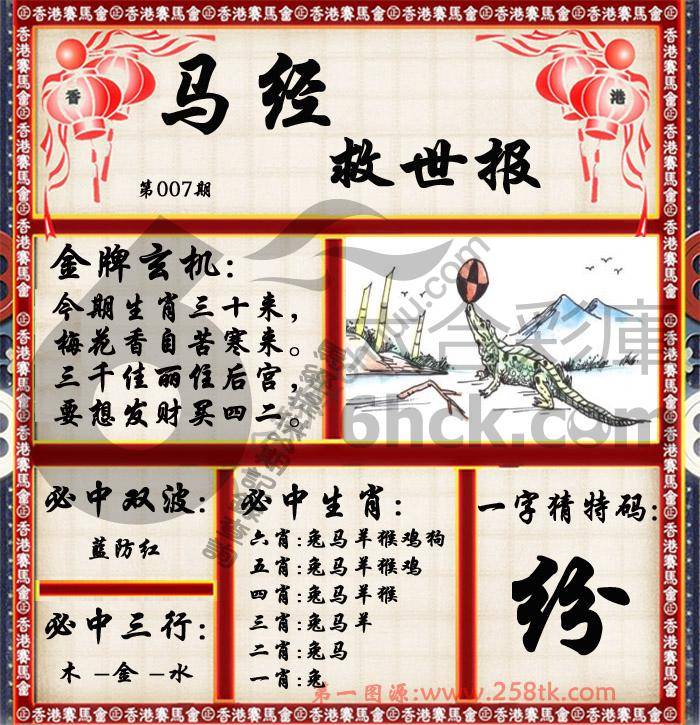 香港賽馬會
香
港
马经
救世报
第007期
金牌玄机:
今期生肖三十来,
梅花香自苦寒来。
三千佳丽住后宫,
要想发财买四二。
六合彩庫
6hck.com
必中双波:
蓝防红
必中三行:
木-金-水
必中生肖:
六肖:兔马羊猴鸡狗
五肖:兔马羊猴鸡
四肖:兔马羊猴
三肖:兔马羊
二肖:兔马
一肖:兔
一字猜特码:
纷
第一图源:www.258tk.com